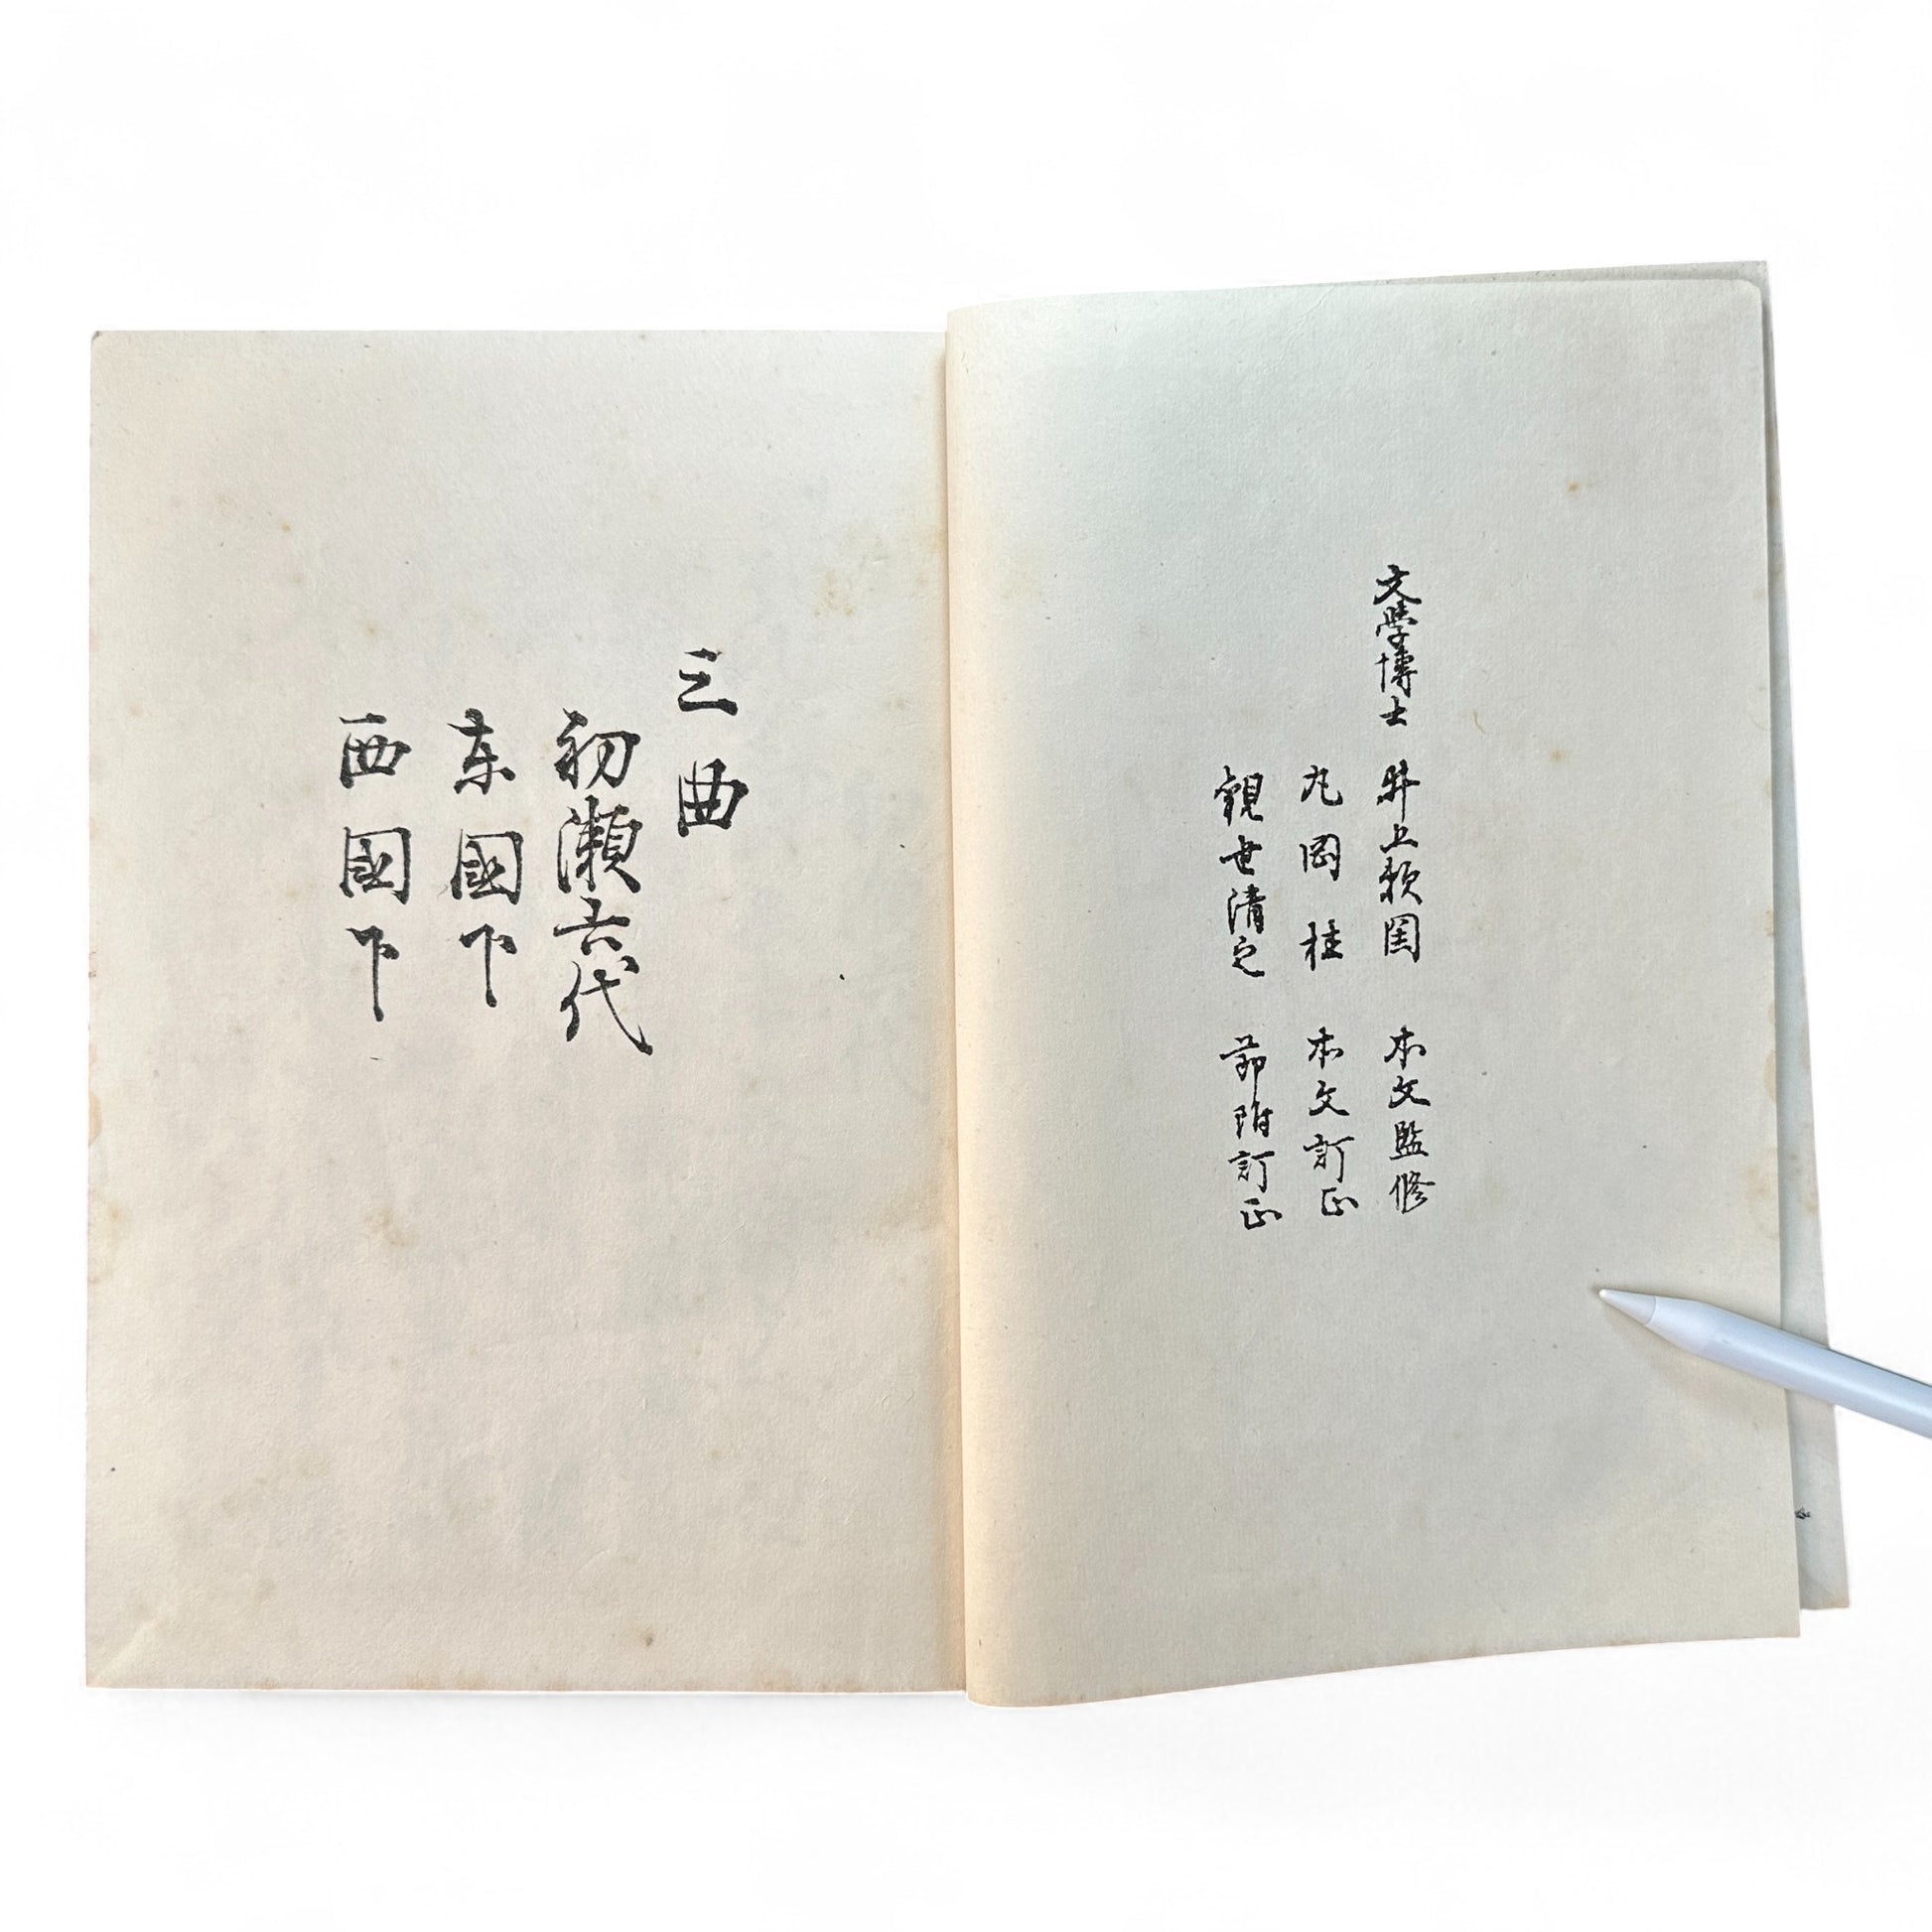 文學博士 井上頼圀 本文監修
丸岡桂 本文訂正
觀世清之 節附訂正
三曲
初瀬六代
東國下
西國下